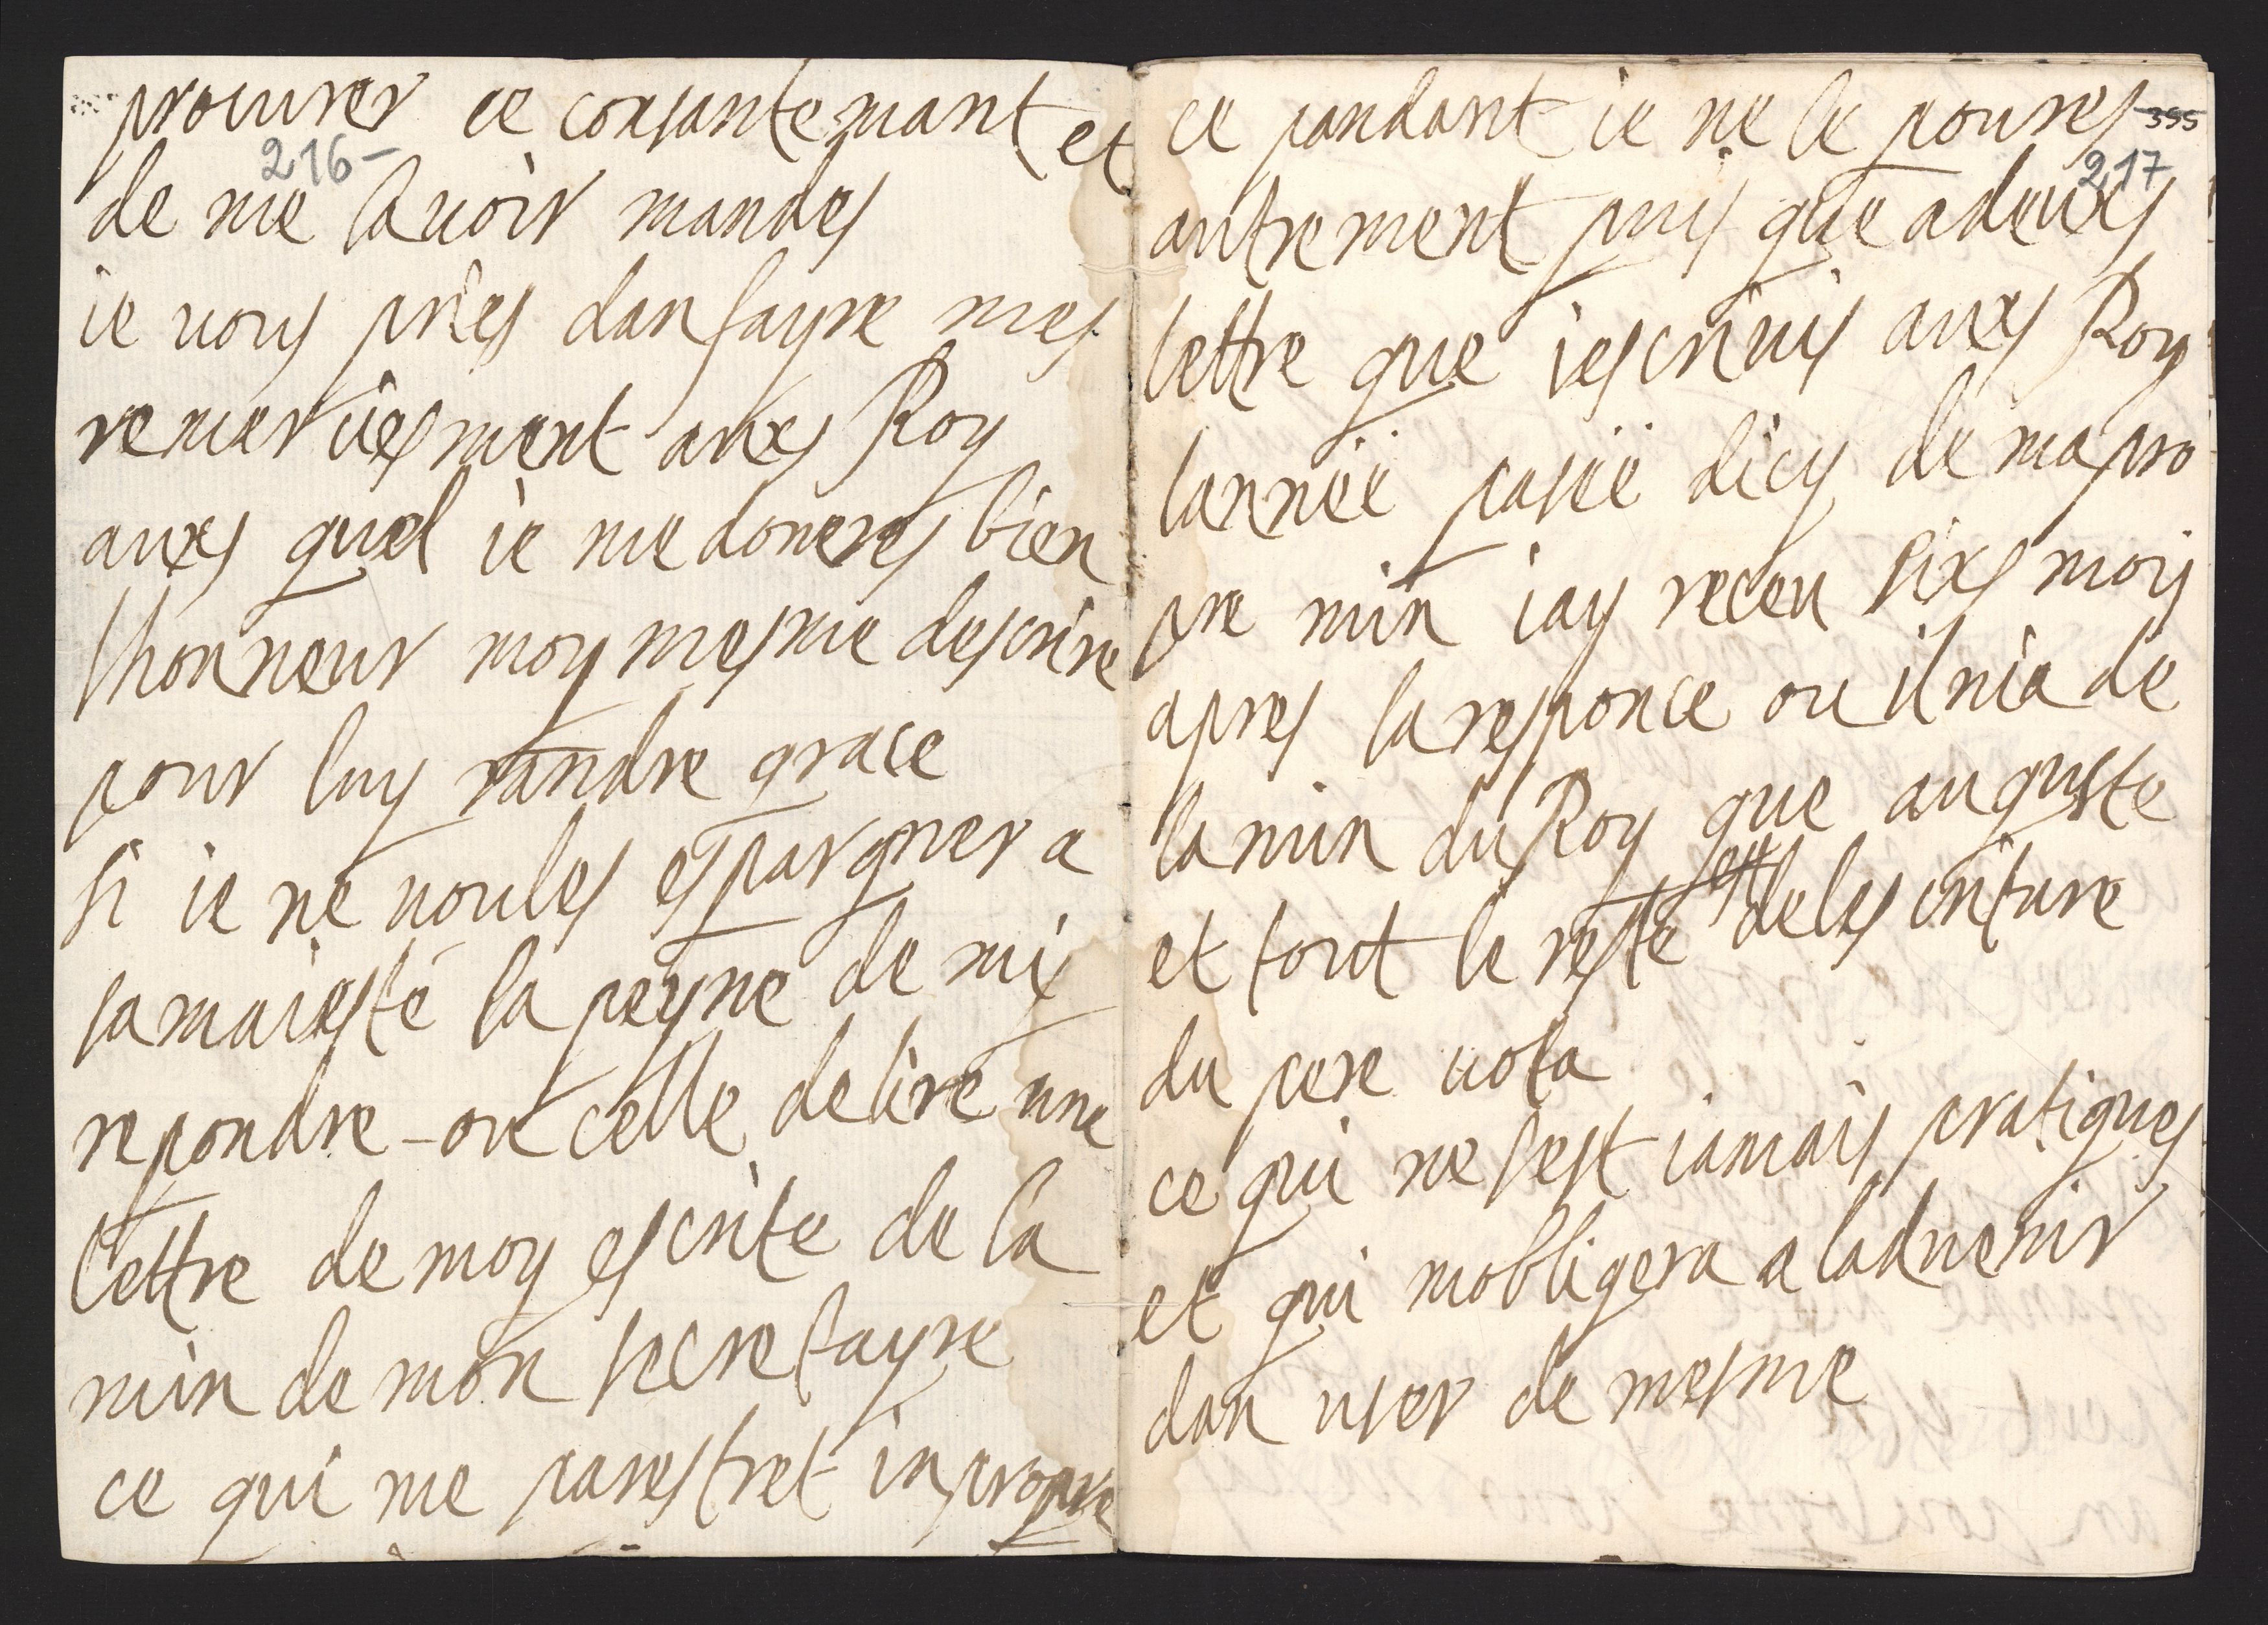 procurer ce consantemant et
216-
de me lavoir mandes
ie vous pries dan fayre mes
remerciesment auxs Roy
auxs quel ie me doneres bien
lhonneur moy mesme descrire
pour luy randre grace
si ie ne voules espargner a
sa maiesté la peyne de mi
repondre - ou celle de lire une
lettre de moy escrite de la
min de mon secretayre
ce qui me parestret inpropre
ce pandant ie ne le poures
355
217
autrement puis que a deuxs
lettre que iescrivis auxs Roy
lannëë pasëë dicy de ma pro
pre min iay receu sixs mois
apres la responce ou il nia de
la min du Roy que auguste
et tout le reste est de lescriture
du pere vota
ce qui ne sest iamais pratiques
et qui mobligera a ladvenir
dan user de mesme